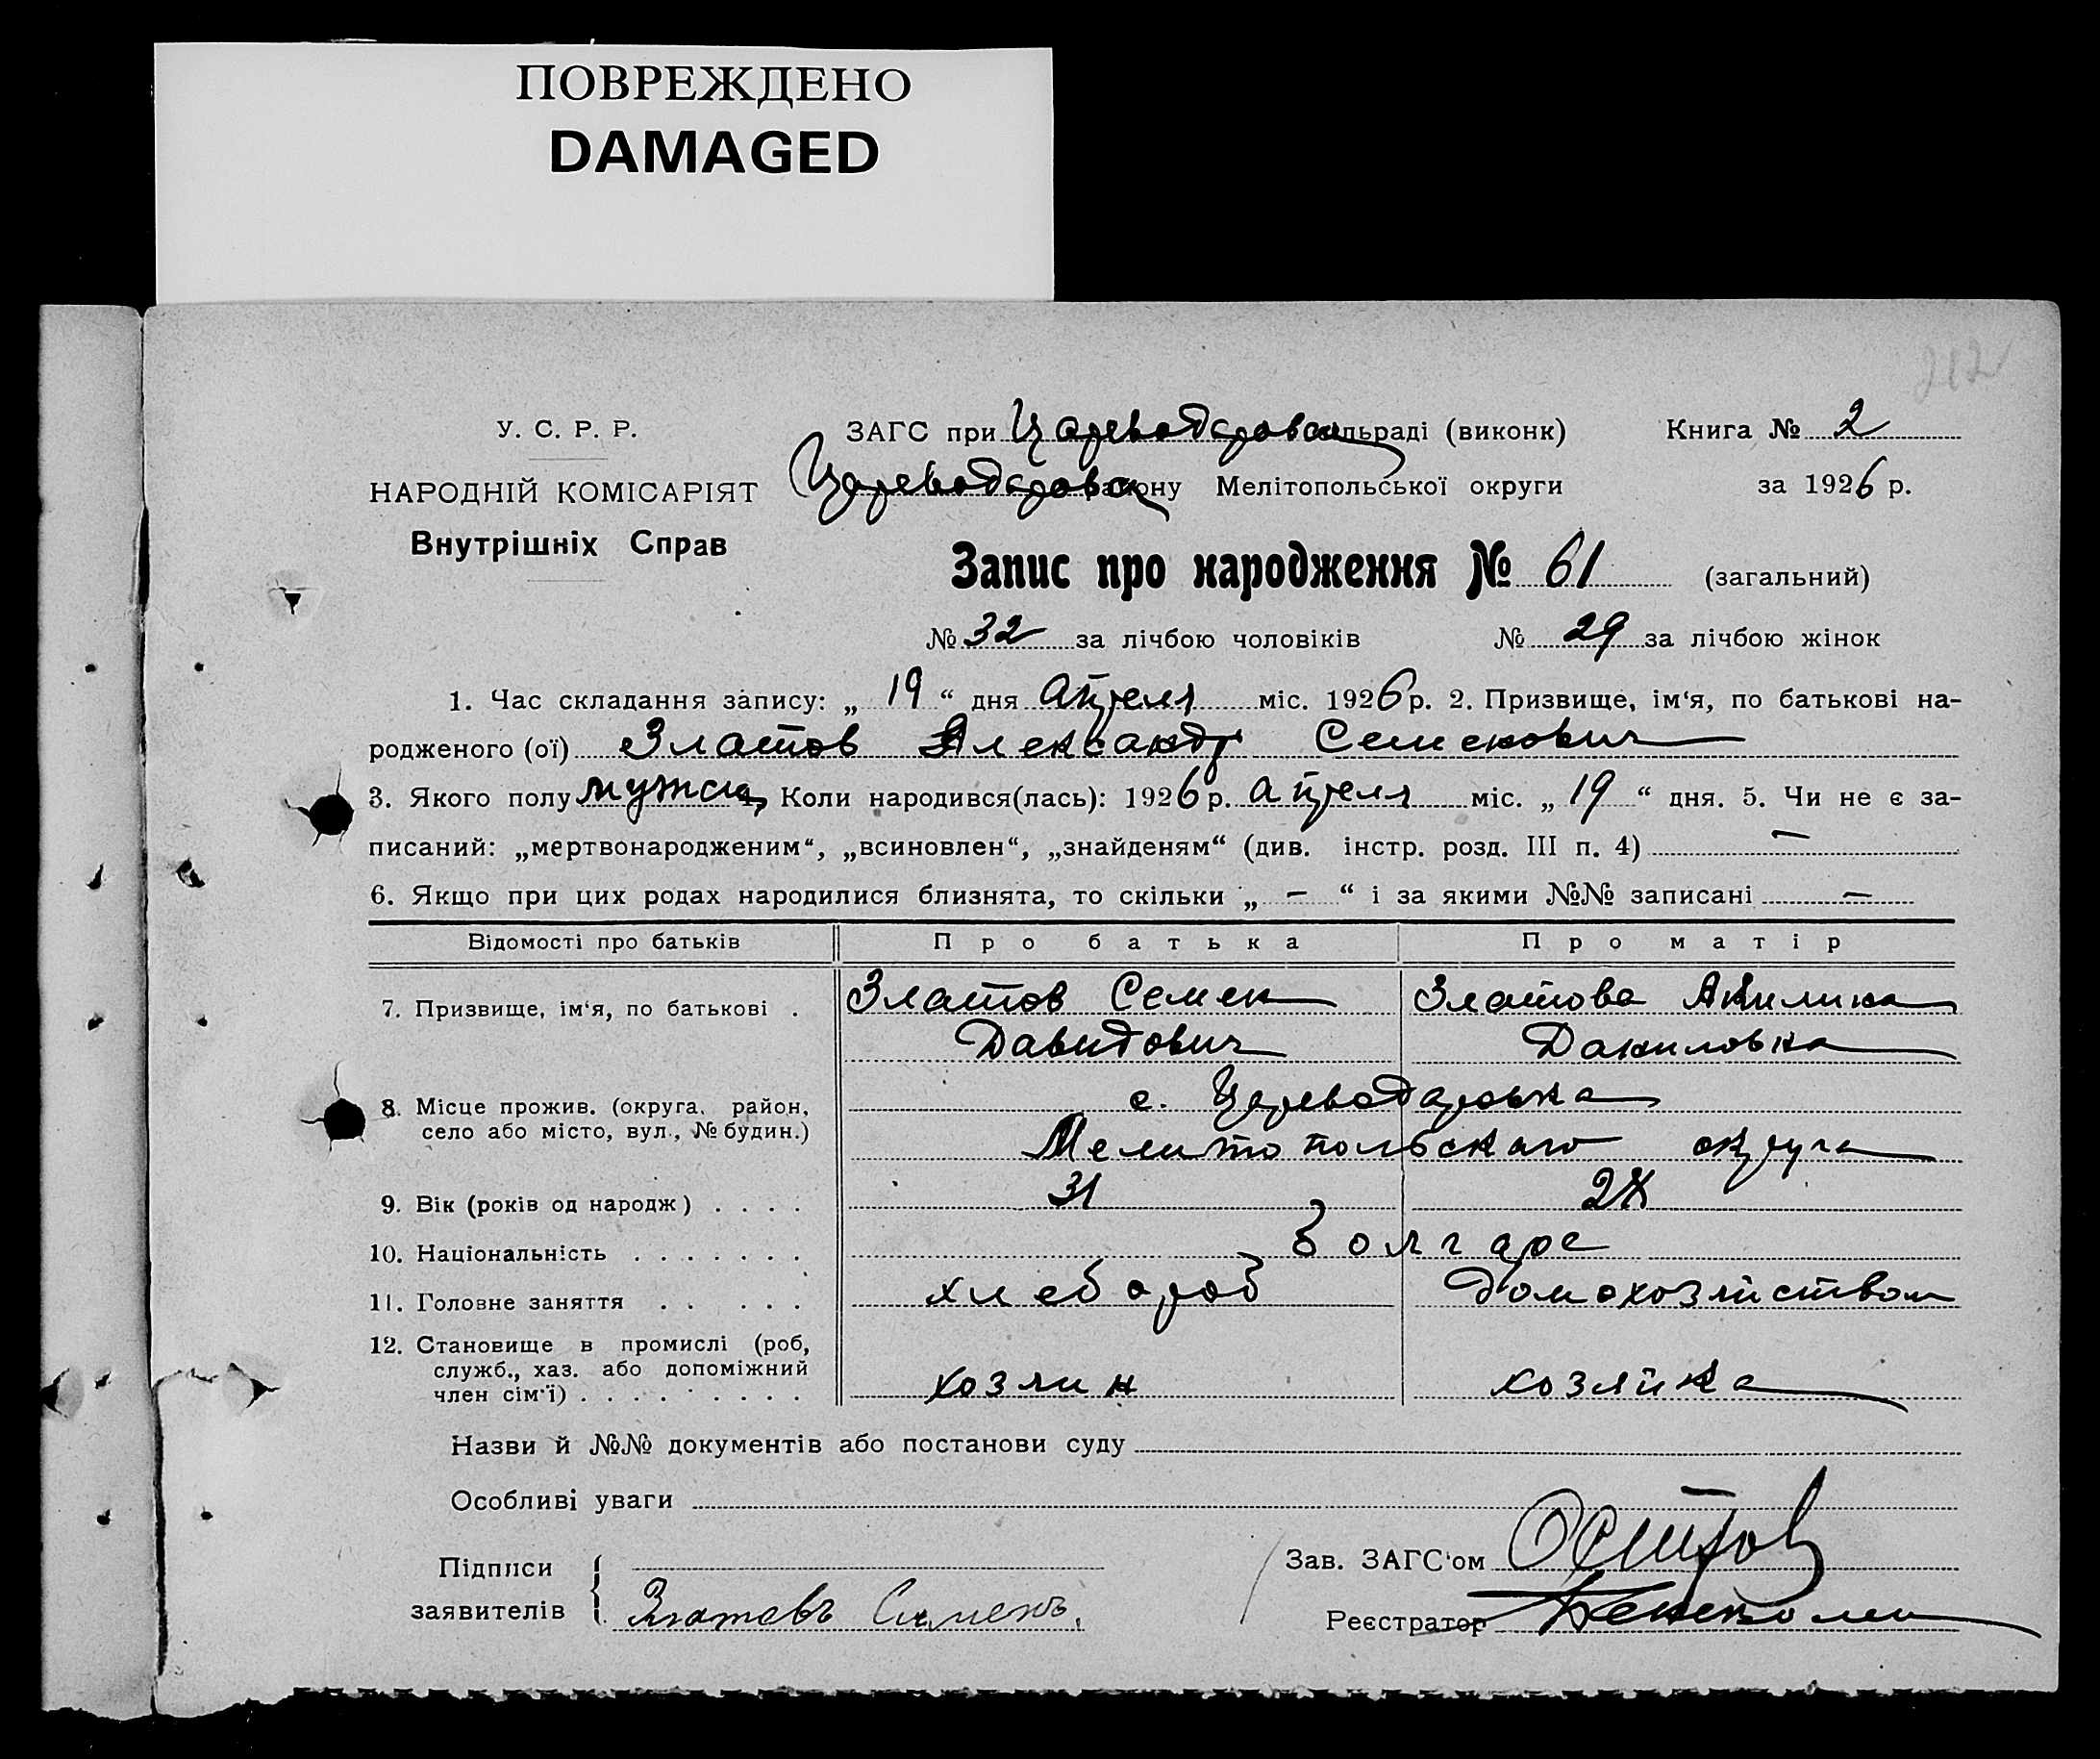 ПОВРЕЖДЕНО
DAMAGED
212
У. С. Р. Р.
НАРОДНІЙ КОМІСАРІЯТ
Внутрішніх Справ
ЗАГС при Цареводаровск сільраді (виконк)
Цареводаровск району Мелітопольської округи
Книга № 2
за 1926 р.
Запис про народження № 61 (загальний)
№ 32 за лічбою чоловіків № 29 за лічбою жінок
1. Час складання запису: „ 19 “ дня апреля міс. 1926 р. 2. Призвище, ім‘я, по батькові на-
родженого (ої) Златов Александр Семенович
3. Якого полу мужск. Коли народився(лась): 1926 р. апреля міс. „ 19 “ дня. 5. Чи не є за-
писаний: „мертвонародженим“, „всиновлен“, „знайденям“ (див. інстр. розд. III п. 4) —
6. Якщо при цих родах народилися близнята, то скільки „ — “ і за якими №№ записані —
Відомості про батьків Про батька Про матір
7. Призвище, ім‘я, по батькові . Златов Семен Златова Акилина
Давидович Даниловна
8. Місце прожив. (округа, район, с. Цареводаровка
село або місто, вул., № будин.) Мелитопольскаго округа
9. Вік (років од народж) . . . . 31 28
10. Національність . . . . . . . Болгаре
11. Головне заняття . . . . . хлебороб Домохозяйством
12. Становище в промислі (роб,
служб., хаз. або допоміжний
член сім‘ї) . . . . . . . . . хозяин хозяйка
Назви й №№ документів або постанови суду
Особливі уваги
Підписи
заявителів Златовъ Семенъ.
Зав. ЗАГС‘ом
Реєстратор